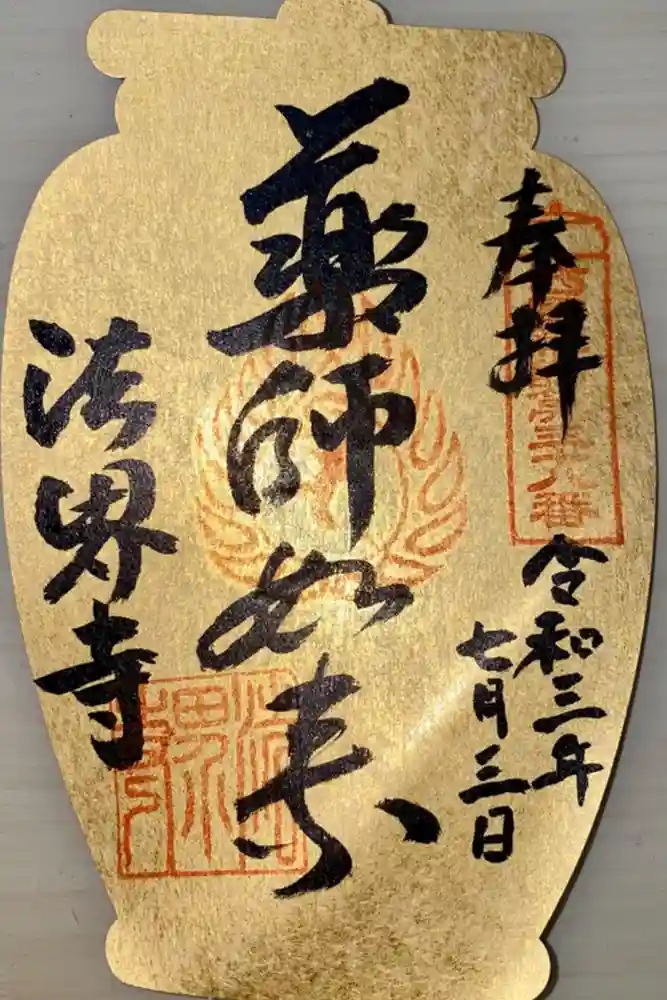 奉拝
令和三年
七月三日
薬師如来
法界寺
法界寺